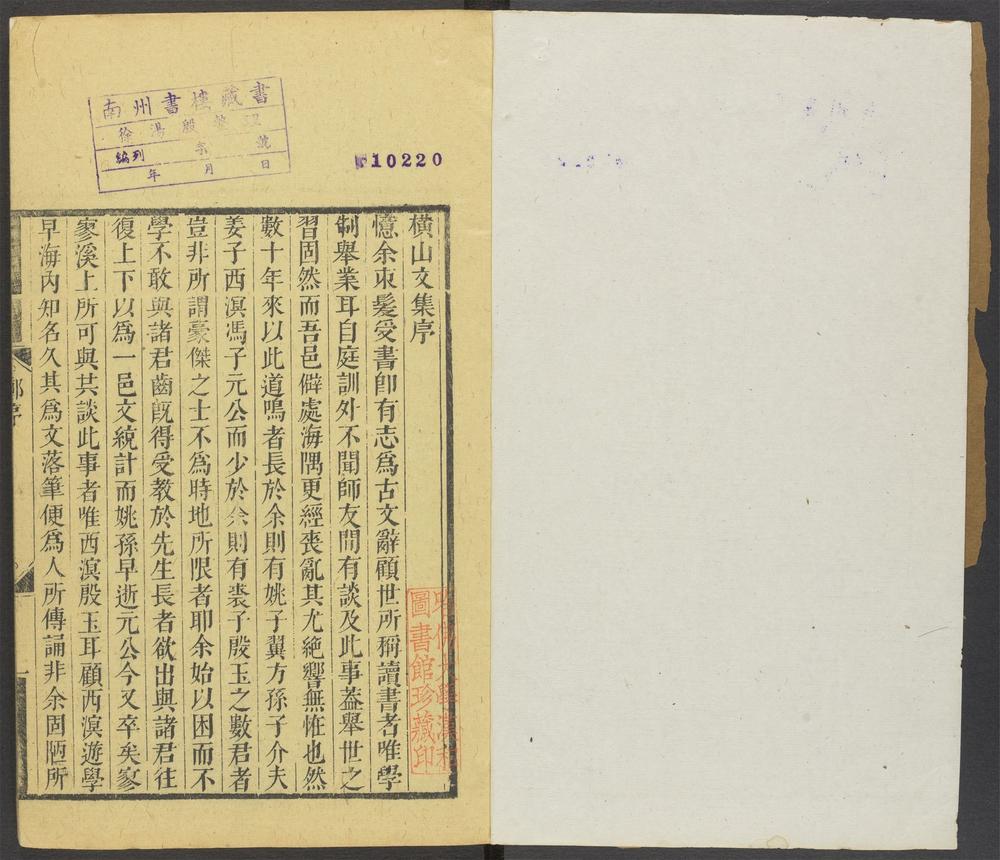 南州書樓藏書
徐湯殷
編列 號
年 月 日
10220
橫山文集序
憶余束髮受書卽有志爲古文辭顧世所稱讀書者唯學
制舉業耳自庭訓外不聞師友間有談及此事蓋舉世之
習固然而吾邑僻處海隅更經喪亂其尤絶響無恠也然
數十年來以此道鳴者長於余則有姚子翼方孫子介夫
姜子西溟馮子元公而少於余則有裘子殷玉之數君者
豈非所謂豪傑之士不爲時地所限者耶余始以困而不
學不敢與諸君齒旣得受教於先生長者欲出與諸君往
復上下以爲一邑文統計而姚孫早逝元公今又卒矣寥
寥溪上所可與共談此事者唯西溟殷玉耳顧西溟遊學
早海內知名久其爲文落筆便爲人所傳誦非余固陋所
鄭序
一
哈佛大學漢和
圖書館珍藏印